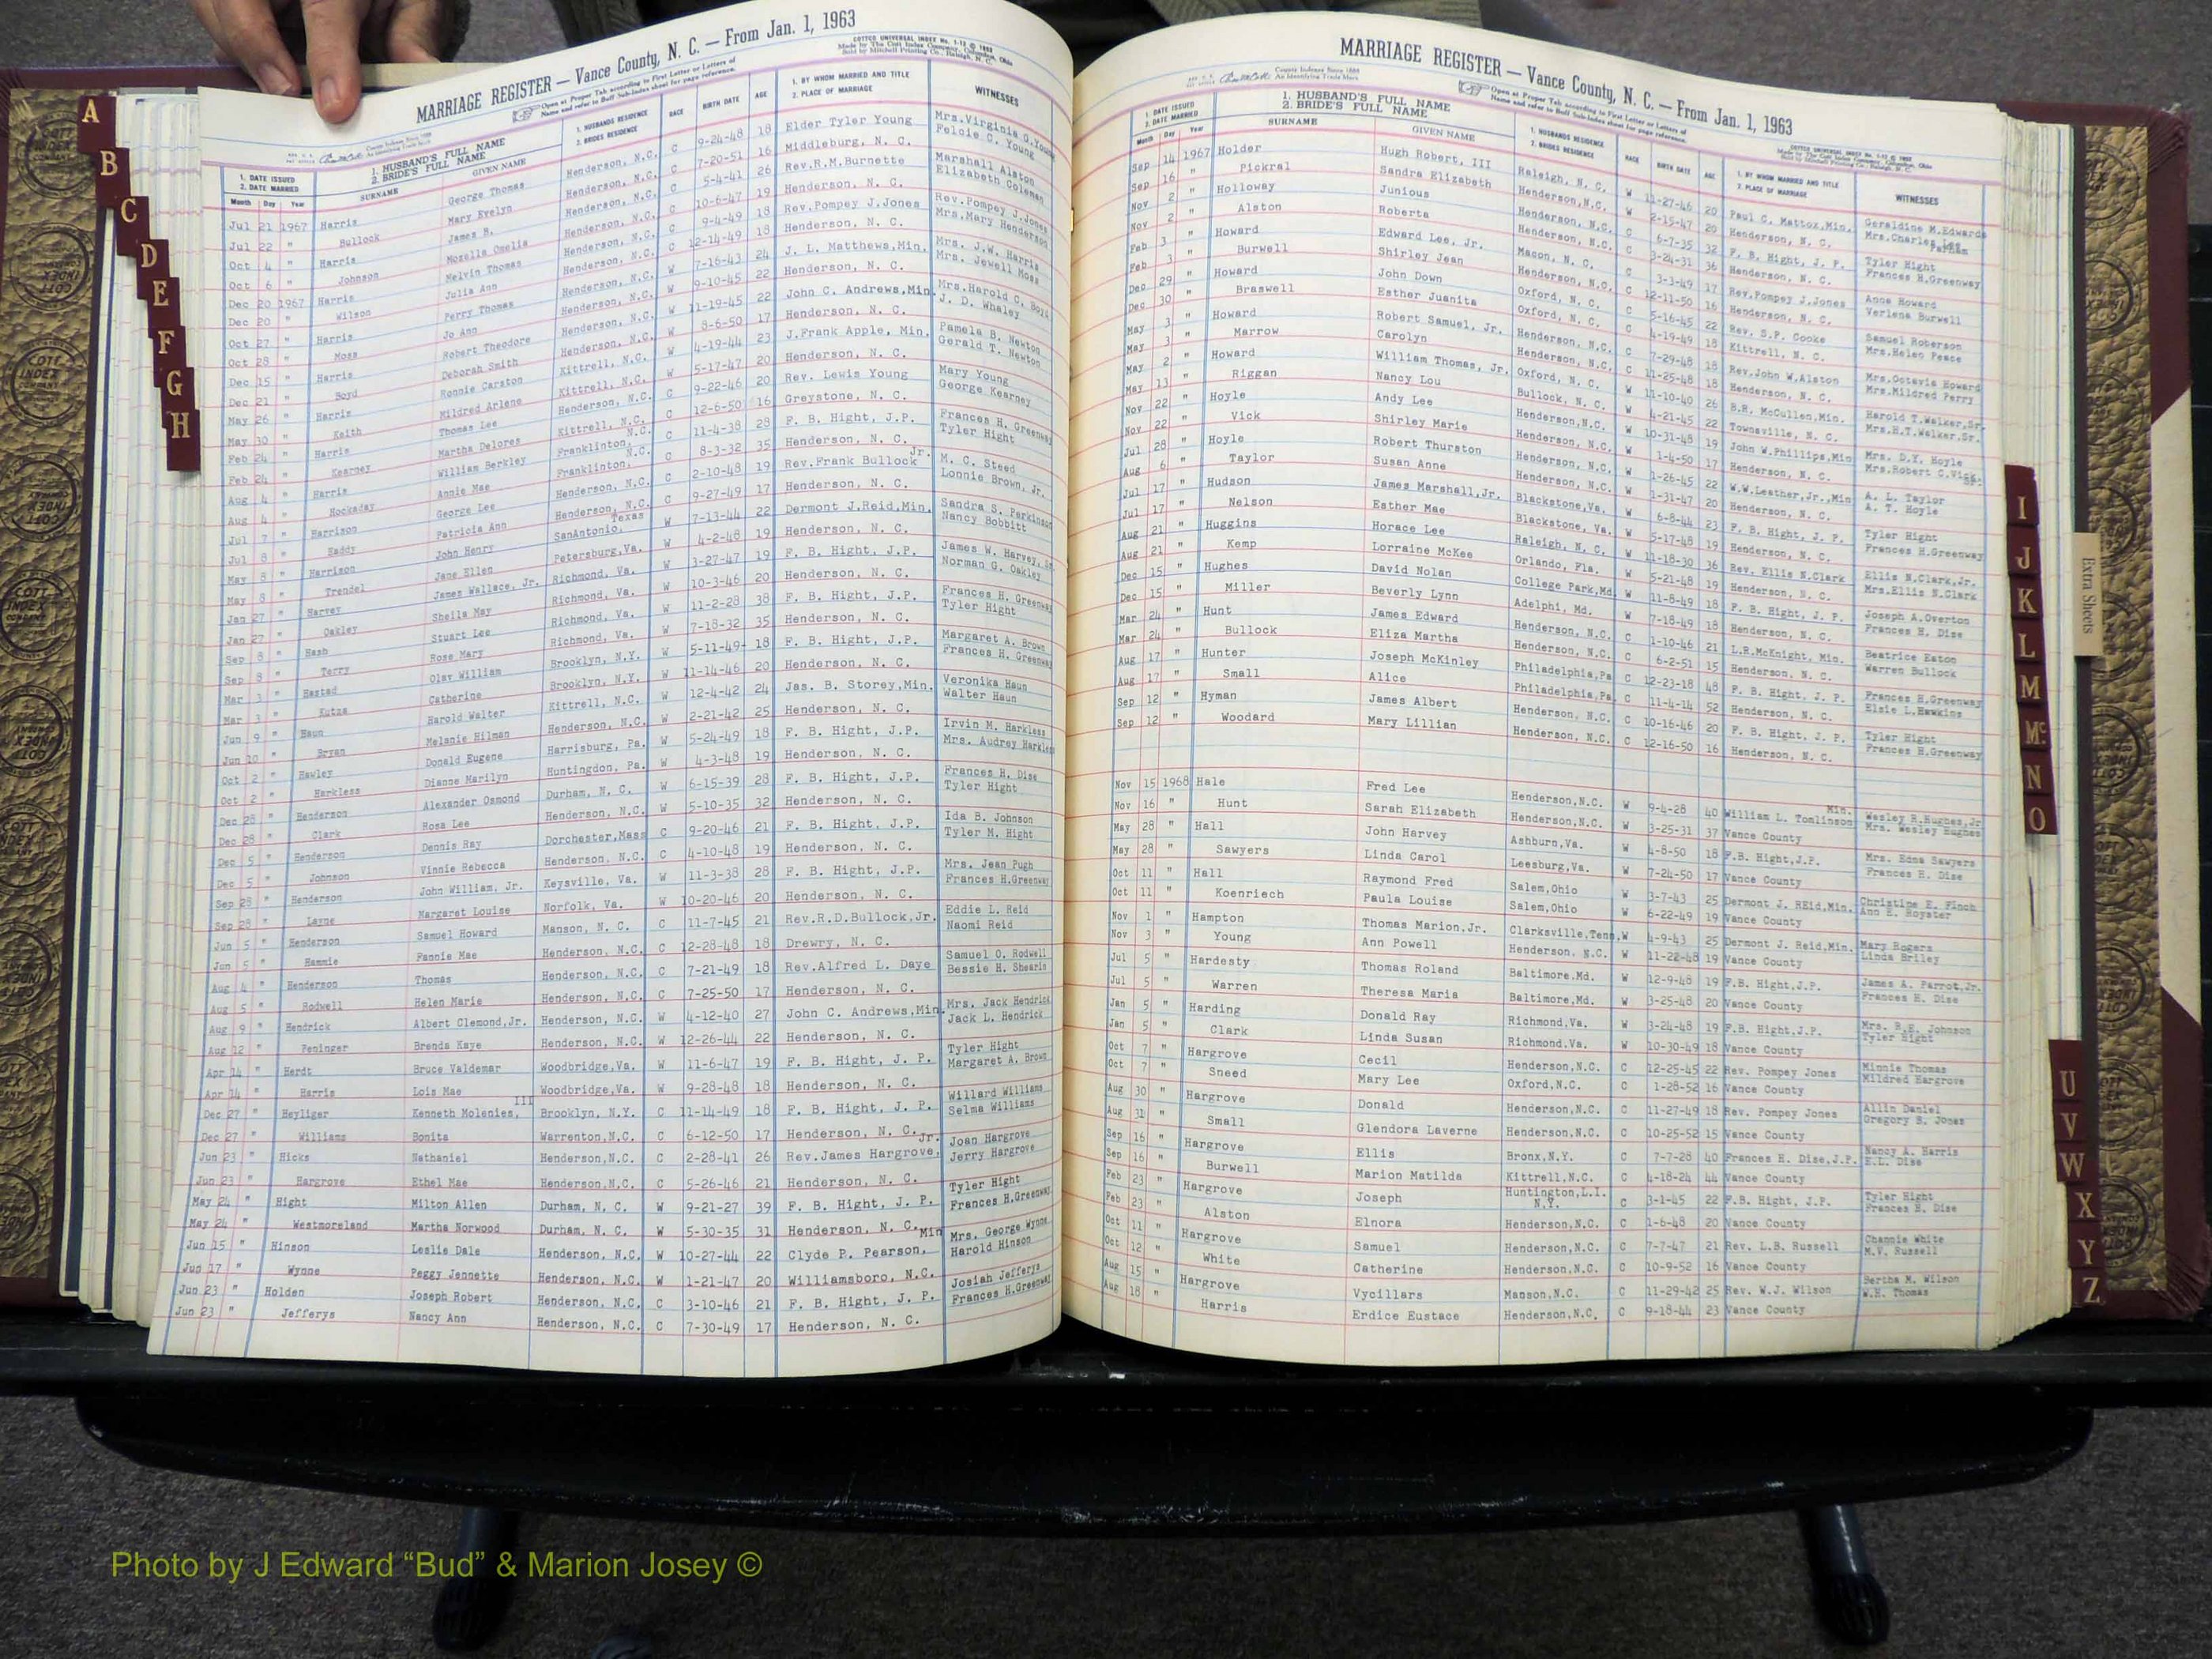 MARRIAGE REGISTER — Vance County, N. C. — From Jan. 1, 1963
Open at Proper Tab according to First Letter or Letters of
Name and refer to Buff Sub-Index sheet for page reference.
COTTCO UNIVERSAL INDEX No. 1-12 © 1952
Made by The Cott Index Company, Columbus, Ohio
Sold by Mitchell Printing Co., Raleigh, N. C.
1. DATE ISSUED
2. DATE MARRIED
Month Day Year
1. HUSBAND'S FULL NAME
2. BRIDE'S FULL NAME
SURNAME GIVEN NAME
1. HUSBANDS RESIDENCE
2. BRIDES RESIDENCE
RACE
BIRTH DATE
AGE
1. BY WHOM MARRIED AND TITLE
2. PLACE OF MARRIAGE
WITNESSES
Jul 21 1967 Harris George Thomas Henderson, N.C. C 9-24-48 18 Elder Tyler Young Mrs.Virginia G.Young
Jul 22 " Bullock Mary Evelyn Henderson, N.C. C 7-20-51 16 Middleburg, N. C. Felcie C. Young
Oct 4 " Harris James B. Henderson, N.C. C 5-4-41 26 Rev.R.M.Burnette Marshall Alston
Oct 6 " Johnson Mozella Omelia Henderson, N.C. C 10-6-47 19 Henderson, N. C. Elizabeth Coleman
Dec 20 1967 Harris Melvin Thomas Henderson, N.C. C 9-4-49 18 Rev.Pompey J.Jones Rev.Pompey J.Jones
Dec 20 " Wilson Julia Ann Henderson, N.C. C 12-14-49 18 Henderson, N. C. Mrs.Mary Henderson
Oct 27 " Harris Perry Thomas Henderson, N.C. W 7-16-43 24 J. L. Matthews,Min. Mrs. J.W. Harris
Oct 28 " Moss Jo Ann Henderson, N.C. W 9-10-45 22 Henderson, N. C. Mrs. Jewell Moss
Dec 15 " Harris Robert Theodore Henderson, N.C. W 11-19-45 22 John C. Andrews,Min. Mrs.Harold C. Boyd
Dec 21 " Boyd Deborah Smith Henderson, N.C. W 8-6-50 17 Henderson, N. C. J. D. Whaley
May 26 " Harris Ronnie Carston Kittrell, N.C. W 4-19-44 23 J.Frank Apple, Min. Pamela B. Newton
May 30 " Keith Mildred Arlene Kittrell, N.C. W 5-17-47 20 Henderson, N. C. Gerald T. Newton
Feb 24 " Harris Thomas Lee Henderson, N.C. C 9-22-46 20 Rev. Lewis Young Mary Young
Feb 24 " Kearney Martha Delores Kittrell, N.C. C 12-6-50 16 Greystone, N. C. George Kearney
Aug 4 " Harris William Berkley Franklinton, N.C. C 11-4-38 28 F. B. Hight, J.P. Frances H. Greenway
Aug 4 " Hockaday Annie Mae Franklinton, N.C. C 8-3-32 35 Henderson, N. C. Tyler Hight
Jul 7 " Harrison George Lee Henderson, N.C. C 2-10-48 19 Rev.Frank Bullock Jr. M. C. Steed
Jul 8 " Haddy Patricia Ann Henderson, N.C. C 9-27-49 17 Henderson, N. C. Lonnie Brown, Jr.
May 8 " Harrison John Henry SanAntonio, Texas W 7-13-44 22 Dermont J.Reid,Min. Sandra S. Perkinson
May 8 " Trendel Jane Ellen Petersburg,Va. W 4-2-48 19 Henderson, N. C. Nancy Bobbitt
Jan 27 " Harvey James Wallace, Jr. Richmond, Va. W 3-27-47 19 F. B. Hight, J.P. James W. Harvey, Sr.
Jan 27 " Oakley Sheila May Richmond, Va. W 10-3-46 20 Henderson, N. C. Norman G. Oakley
Sep 8 " Hash Stuart Lee Richmond, Va. W 11-2-28 38 F. B. Hight, J.P. Frances H. Greenway
Sep 8 " Terry Rose Mary Richmond, Va. W 7-18-32 35 Henderson, N. C. Tyler Hight
Mar 3 " Hastad Olav William Brooklyn, N.Y. W 5-11-49 18 F. B. Hight, J.P. Margaret A. Brown
Mar 3 " Kutza Catherine Brooklyn, N.Y. W 11-14-46 20 Henderson, N. C. Frances H. Greenway
Jun 9 " Haun Harold Walter Kittrell, N.C. W 12-4-42 24 Jas. B. Storey,Min. Veronika Haun
Jun 10 " Bryan Melanie Hilman Henderson, N.C. W 2-21-42 25 Henderson, N. C. Walter Haun
Oct 2 " Hawley Donald Eugene Harrisburg, Pa. W 5-24-49 18 F. B. Hight, J.P. Irvin M. Harkless
Oct 2 " Harkless Dianne Marilyn Huntingdon, Pa. W 4-3-48 19 Henderson, N. C. Mrs. Audrey Harkless
Dec 28 " Henderson Alexander Osmond Durham, N. C. W 6-15-39 28 F. B. Hight, J.P. Frances H. Dise
Dec 28 " Clark Rosa Lee Henderson, N.C. W 5-10-35 32 Henderson, N. C. Tyler Hight
Dec 5 " Henderson Dennis Ray Dorchester,Mass C 9-20-46 21 F. B. Hight, J.P. Ida B. Johnson
Dec 5 " Johnson Vinnie Rebecca Henderson, N.C. C 4-10-48 19 Henderson, N. C. Tyler M. Hight
Sep 28 " Henderson John William, Jr. Keysville, Va. W 11-3-38 28 F. B. Hight, J.P. Mrs. Jean Pugh
Sep 28 " Layne Margaret Louise Norfolk, Va. W 10-20-46 20 Henderson, N. C. Frances H.Greenway
Jun 5 " Henderson Samuel Howard Manson, N. C. C 11-7-45 21 Rev.R.D.Bullock,Jr. Eddie L. Reid
Jun 5 " Hammie Fannie Mae Henderson, N.C. C 12-28-48 18 Drewry, N. C. Naomi Reid
Aug 4 " Henderson Thomas Henderson, N.C. C 7-21-49 18 Rev.Alfred L. Daye Samuel O. Rodwell
Aug 5 " Rodwell Helen Marie Henderson, N.C. C 7-25-50 17 Henderson, N. C. Bessie H. Shearin
Aug 9 " Hendrick Albert Clemond,Jr. Henderson, N.C. W 4-12-40 27 John C. Andrews,Min. Mrs. Jack Hendrick
Aug 12 " Peninger Brenda Kaye Henderson, N.C. W 12-26-44 22 Henderson, N. C. Jack L. Hendrick
Apr 14 " Herdt Bruce Valdemar Woodbridge,Va. W 11-6-47 19 F. B. Hight, J. P. Tyler Hight
Apr 14 " Harris Lois Mae Woodbridge,Va. W 9-28-48 18 Henderson, N. C. Margaret A. Brown
Dec 27 " Heyliger Kenneth Molenies, III Brooklyn, N.Y. C 11-14-49 18 F. B. Hight, J. P. Willard Williams
Dec 27 " Williams Bonita Warrenton,N.C. C 6-12-50 17 Henderson, N. C. Selma Williams
Jun 23 " Hicks Nathaniel Henderson,N.C. C 2-28-41 26 Rev.James Hargrove, Jr. Joan Hargrove
Jun 23 " Hargrove Ethel Mae Henderson,N.C. C 5-26-46 21 Henderson, N. C. Jerry Hargrove
May 24 " Hight Milton Allen Durham, N. C. W 9-21-27 39 F. B. Hight, J. P. Tyler Hight
May 24 " Westmoreland Martha Norwood Durham, N. C. W 5-30-35 31 Henderson, N. C. Frances H.Greenway
Jun 15 " Hinson Leslie Dale Henderson, N.C. W 10-27-44 22 Clyde P. Pearson, Min Mrs. George Wynne
Jun 17 " Wynne Peggy Jennette Henderson, N.C. W 1-21-47 20 Williamsboro, N.C. Harold Hinson
Jun 23 " Holden Joseph Robert Henderson, N.C. C 3-10-46 21 F. B. Hight, J. P. Josiah Jefferys
Jun 23 " Jefferys Nancy Ann Henderson, N.C. C 7-30-49 17 Henderson, N. C. Frances H.Greenway
MARRIAGE REGISTER — Vance County, N. C. — From Jan. 1, 1963
County Indexes Since 1888
An Identifying Trade Mark
Open at Proper Tab according to First Letter or Letters of
Name and refer to Buff Sub-Index sheet for page reference.
COTTCO UNIVERSAL INDEX No. 1-12 © 1952
Made by The Cott Index Company, Columbus, Ohio
Sold by Mitchell Printing Co., Raleigh, N. C.
1. DATE ISSUED
2. DATE MARRIED
Month Day Year
1. HUSBAND'S FULL NAME
2. BRIDE'S FULL NAME
SURNAME GIVEN NAME
1. HUSBANDS RESIDENCE
2. BRIDES RESIDENCE
RACE
BIRTH DATE
AGE
1. BY WHOM MARRIED AND TITLE
2. PLACE OF MARRIAGE
WITNESSES
Sep 14 1967 Holder Hugh Robert, III Raleigh, N. C. W 11-27-46 20 Paul C. Mattox,Min. Geraldine M.Edwards
Sep 16 " Pickral Sandra Elizabeth Henderson,N.C. W 2-15-47 20 Henderson, N. C. Mrs.Charles Lee Parham
Nov 2 " Holloway Junious Henderson, N.C. C 6-7-35 32 F. B. Hight, J. P. Tyler Hight
Nov 2 " Alston Roberta Henderson, N.C. C 3-24-31 36 Henderson, N. C. Frances H.Greenway
Feb 3 " Howard Edward Lee, Jr. Macon, N. C. C 3-3-49 17 Rev.Pompey J.Jones Anne Howard
Feb 3 " Burwell Shirley Jean Henderson, N.C. C 12-11-50 16 Henderson, N. C. Verlena Burwell
Dec 29 " Howard John Down Oxford, N. C. C 5-16-45 22 Rev. S.P. Cooke Samuel Roberson
Dec 30 " Braswell Esther Juanita Oxford, N. C. C 4-19-49 18 Kittrell, N. C. Mrs.Helen Peace
May 3 " Howard Robert Samuel, Jr. Henderson, N.C. C 7-29-48 18 Rev.John W.Alston Mrs.Octavia Howard
May 3 " Marrow Carolyn Henderson, N.C. C 11-25-48 18 Henderson, N. C. Mrs.Mildred Perry
May 2 " Howard William Thomas, Jr. Oxford, N. C. W 11-10-40 26 B.R. McCullen,Min. Harold T.Walker,Sr.
May 13 " Riggan Nancy Lou Bullock, N. C. W 4-21-45 22 Townsville, N. C. Mrs.H.T.Walker,Sr.
Nov 22 " Hoyle Andy Lee Henderson,N.C. W 10-31-48 19 John W.Phillips,Min Mrs. D.Y. Hoyle
Nov 22 " Vick Shirley Marie Henderson, N.C. W 1-4-50 17 Henderson, N. C. Mrs.Robert C.Vick, Sr.
Jul 28 " Hoyle Robert Thurston Henderson, N.C. W 1-26-45 22 W.W.Leather,Jr.,Min A. L. Taylor
Aug 6 " Taylor Susan Anne Henderson, N.C. W 1-31-47 20 Henderson, N. C. A. T. Hoyle
Jul 17 " Hudson James Marshall,Jr. Blackstone,Va. W 6-8-44 23 F. B. Hight, J. P. Tyler Hight
Jul 17 " Nelson Esther Mae Blackstone, Va. W 5-17-48 19 Henderson, N. C. Frances H.Greenway
Aug 21 " Huggins Horace Lee Raleigh, N. C. W 11-18-30 36 Rev. Ellis N.Clark Ellis N.Clark,Jr.
Aug 21 " Kemp Lorraine McKee Orlando, Fla. W 5-21-48 19 Henderson, N. C. Mrs.Ellis N.Clark
Dec 15 " Hughes David Nolan College Park,Md. W 11-8-49 18 F. B. Hight, J. P. Joseph A.Overton
Dec 15 " Miller Beverly Lynn Adelphi, Md. W 7-18-49 18 Henderson, N. C. Frances H. Dise
Mar 24 " Hunt James Edward Henderson, N.C. C 1-10-46 21 L.R.McKnight, Min. Beatrice Eaton
Mar 24 " Bullock Eliza Martha Henderson, N.C. C 6-2-51 15 Henderson, N. C. Warren Bullock
Aug 17 " Hunter Joseph McKinley Philadelphia,Pa C 12-23-18 48 F. B. Hight, J. P. Frances H.Greenway
Aug 17 " Small Alice Philadelphia,Pa. C 11-4-14 52 Henderson, N. C. Elsie L.Hawkins
Sep 12 " Hyman James Albert Henderson, N.C. C 10-16-46 20 F. B. Hight, J. P. Tyler Hight
Sep 12 " Woodard Mary Lillian Henderson, N.C. C 12-16-50 16 Henderson, N. C. Frances H.Greenway
Nov 15 1968 Hale Fred Lee Henderson,N.C. W 9-4-28 40 William L. Tomlinson Min. Wesley R.Hughes,Jr
Nov 16 " Hunt Sarah Elizabeth Henderson,N.C. W 3-25-31 37 Vance County Mrs. Wesley Hughes
May 28 " Hall John Harvey Ashburn,Va. W 4-8-50 18 F.B. Hight,J.P. Mrs. Edna Sawyers
May 28 " Sawyers Linda Carol Leesburg,Va. W 7-24-50 17 Vance County Frances H. Dise
Oct 11 " Hall Raymond Fred Salem,Ohio W 3-7-43 25 Dermont J. REid,Min. Christine E. Finch
Oct 11 " Koenriech Paula Louise Salem,Ohio W 6-22-49 19 Vance County Ann E. Royster
Nov 1 " Hampton Thomas Marion,Jr. Clarksville,Tenn. W 4-9-43 25 Dermont J. Reid,Min. Mary Rogers
Nov 3 " Young Ann Powell Henderson, N.C. W 11-22-48 19 Vance County Linda Briley
Jul 5 " Hardesty Thomas Roland Baltimore.Md. W 12-9-48 19 F.B. Hight,J.P. James A. Parrot,Jr.
Jul 5 " Warren Theresa Maria Baltimore,Md. W 3-25-48 20 Vance County Frances H. Dise
Jan 5 " Harding Donald Ray Richmond,Va. W 3-24-48 19 F.B. Hight,J.P. Mrs. R.E. Johnson
Jan 5 " Clark Linda Susan Richmond.Va. W 10-30-49 18 Vance County Tyler Hight
Oct 7 " Hargrove Cecil Henderson,N.C. C 12-25-45 22 Rev. Pompey Jones Minnie Thomas
Oct 7 " Sneed Mary Lee Oxford,N.C. C 1-28-52 16 Vance County Mildred Hargrove
Aug 30 " Hargrove Donald Henderson,N.C. C 11-27-49 18 Rev. Pompey Jones Allin Daniel
Aug 31 " Small Glendora Laverne Henderson,N.C. C 10-25-52 15 Vance County Gregory S. Jones
Sep 16 " Hargrove Ellis Bronx,N.Y. C 7-7-28 40 Frances H. Dise,J.P. Nancy A. Harris
Sep 16 " Burwell Marion Matilda Kittrell,N.C. C 4-18-24 44 Vance County E.L. Dise
Feb 23 " Hargrove Joseph Huntington,L.I. N.Y. C 3-1-45 22 F.B. Hight, J.P. Tyler Hight
Feb 23 " Alston Elnora Henderson,N.C. C 1-6-48 20 Vance County Frances H. Dise
Oct 11 " Hargrove Samuel Henderson,N.C. C 7-7-47 21 Rev. L.B. Russell Channie White
Oct 12 " White Catherine Henderson,N.C. C 10-9-52 16 Vance County M.V. Russell
Aug 15 " Hargrove Vycillars Manson,N.C. C 11-29-42 25 Rev. W.J. Wilson Bertha M. Wilson
Aug 18 " Harris Erdice Eustace Henderson,N.C. C 9-18-44 23 Vance County W.H. Thomas
A
B
C
D
E
F
G
H
I
J
K
L
M
Mc
N
O
U
V
W
X
Y
Z
Extra Sheets
COTT INDEX COMPANY
Photo by J Edward “Bud” & Marion Josey ©